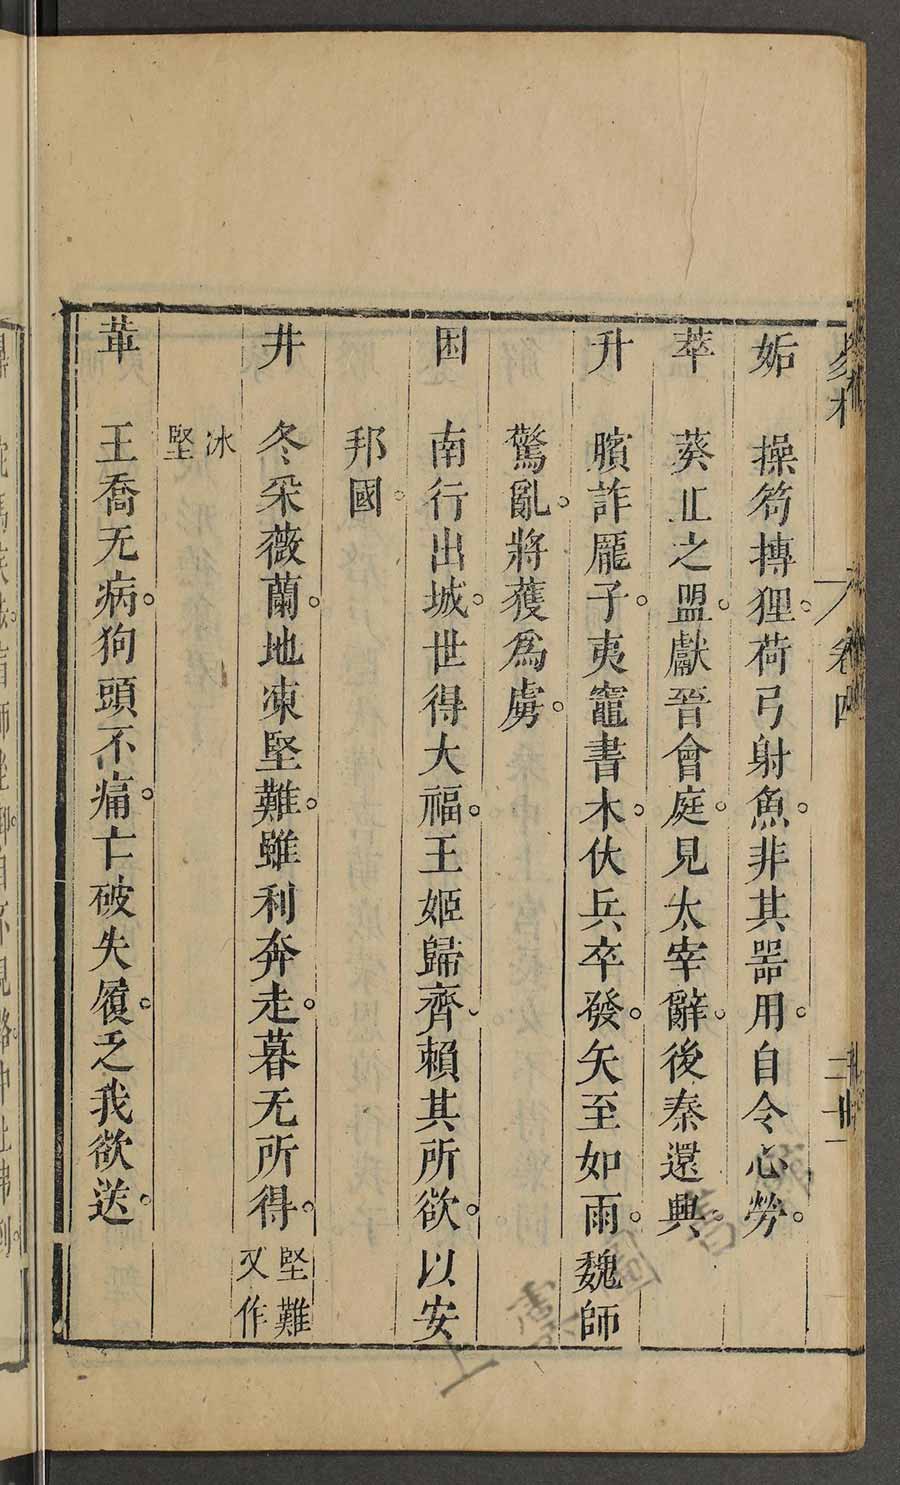 姤　操笱搏狸。荷弓射魚。非其噐用。自令心勞。
萃　葵丘之盟。獻晉會庭。見太宰辭。後秦還輿。
升　臏詐龎子。夷竈書木。伏兵卒發。矢至如雨。魏師
驚亂。將獲爲虜。
困　南行出城。世得大福。王姬歸齊。賴其所欲。以安
邦國。
井　冬采薇蘭。地凍堅難。雖利奔走。暮无所得。堅難又作
冰堅
革　王喬无病。狗頭不痛。亡破失履。乏我欲送。